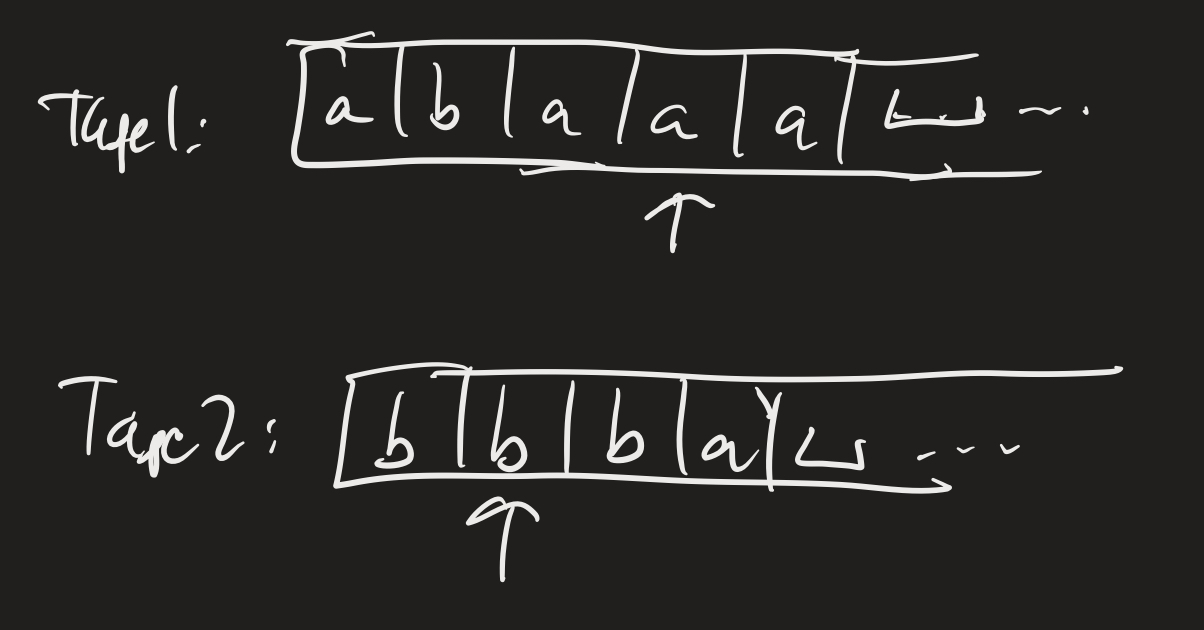 Tape1: a b a a a ⊔ ...
Tape2: b b b a ⊔ ...